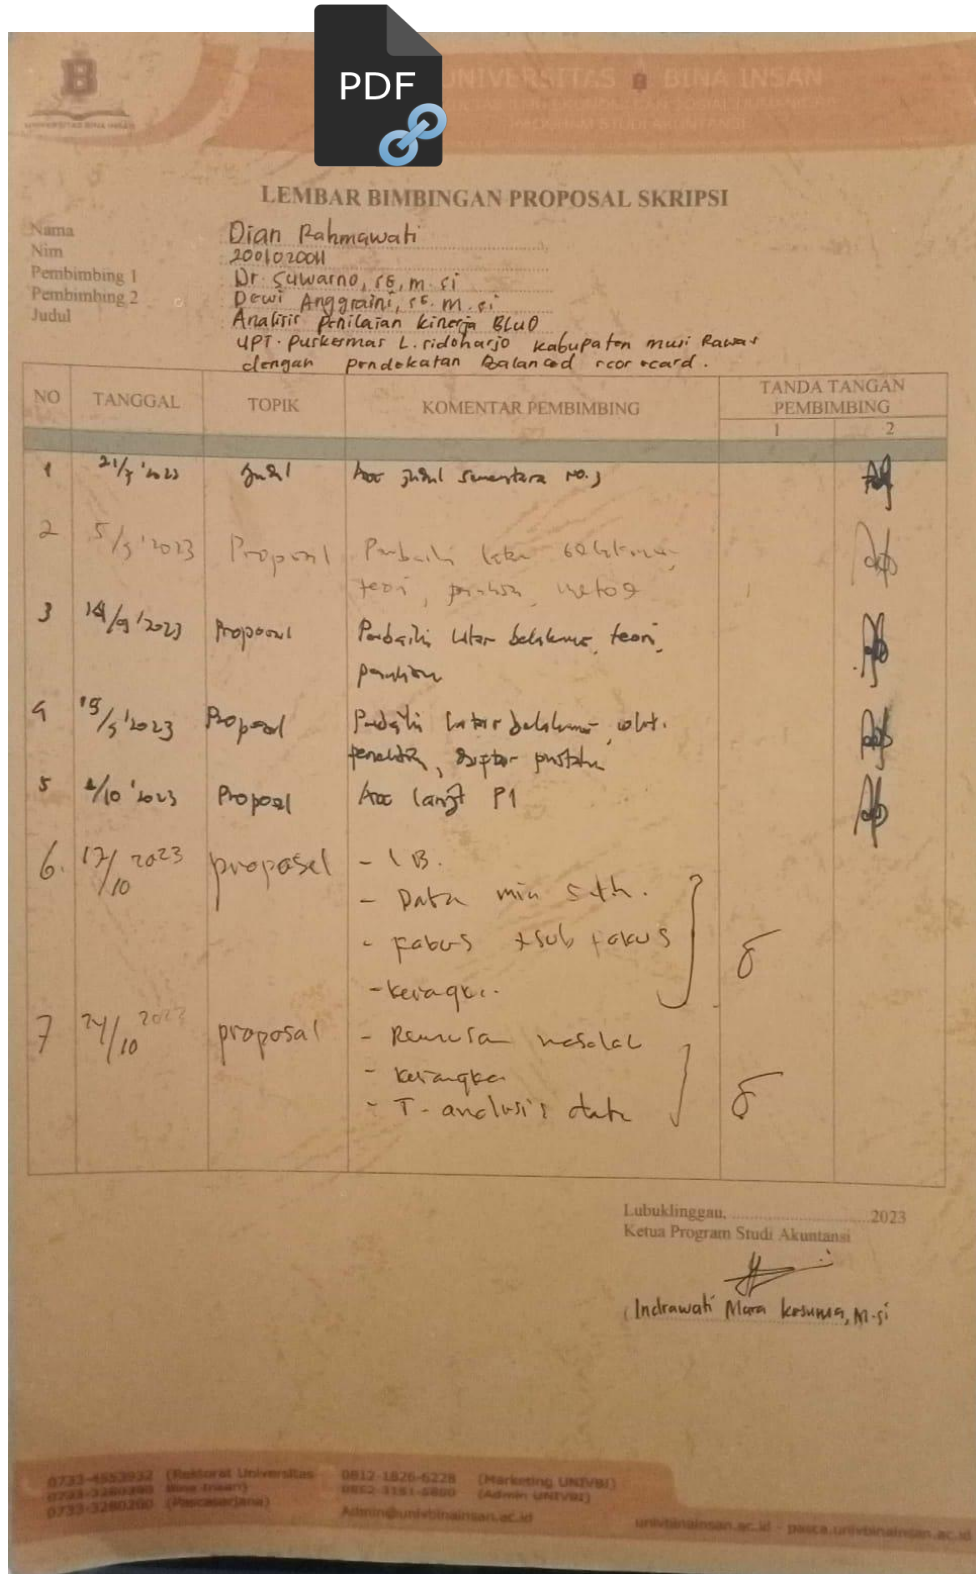 PDF
UNIVERSITAS BINA INSAN
UNIVERSITAS BINA INSAN
PROGRAM STUDI AKUNTANSI
LEMBAR BIMBINGAN PROPOSAL SKRIPSI
Nama Dian Rahmawati
Nim 2001020011
Pembimbing 1 Dr. Suwarno, SE, M.Si
Pembimbing 2 Dewi Anggraini, SE. M.Si
Judul Analisis penilaian kinerja BLUD
UPT. Puskesmas L. Sidoharjo Kabupaten Musi Rawas
dengan pendekatan Balanced scorecard.
NO TANGGAL TOPIK KOMENTAR PEMBIMBING TANDA TANGAN PEMBIMBING
1 2
1 Judul Acc Judul Sementara No. 3
2 5/9 '2023 Proposal Perbaiki latar belakang,
teori, metod
3 14/9 '2023 Proposal Perbaiki latar belakang, teori,
4 19/9 '2023 Proposal Perbaiki latar belakang,
penelitian, daftar pustaka
5 2/10 '2023 Proposal Acc lanjt P1
6. 17/10 2023 proposal - LB.
- Data min 5 th.
- Fokus + sub fokus
- kerangka.
7 24/10 2023 proposal - Rumusan masalah
- kerangka
- T. analisis data
Lubuklinggau, 2023
Ketua Program Studi Akuntansi
(Indrawati Mara Kesuma, M.Si
0733-3280300 (Pascasarjana)
(Rektorat Universitas
Bina Insan)
0812-1826-6228 (Marketing UNIVBI)
(Admin UNIVBI)
Admin@univbinainsan.ac.id
univbinainsan.ac.id - pasca.univbinainsan.ac.id